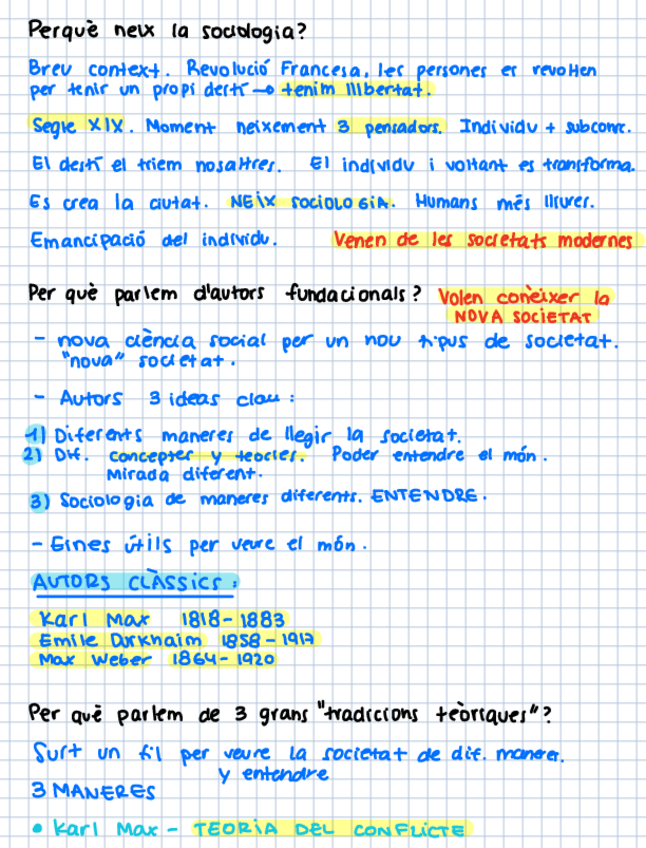 Perquè neix la sociologia?
Breu context. Revolució Francesa, les persones es revolten
per tenir un propi destí → tenim llibertat.
Segle XIX. Moment neixement 3 pensadors. Individu + subconc.
El destí el triem nosaltres. El individu i voltant es transforma.
Es crea la ciutat. NEIX SOCIOLOGIA. Humans més lliures.
Emancipació del individu. Venen de les societats modernes
Per què parlem d'autors fundacionals? Volen conèixer la
NOVA SOCIETAT
- nova ciència social per un nou tipus de societat.
"nova" societat.
- Autors 3 ideas clau:
1) Diferents maneres de llegir la societat.
2) Dif. conceptes y teories. Poder entendre el món.
Mirada diferent.
3) Sociologia de maneres diferents. ENTENDRE.
- Eines útils per veure el món.
AUTORS CLÀSSICS:
Karl Max 1818-1883
Emile Durkhaim 1858-1917
Max Weber 1864-1920
Per què parlem de 3 grans "tradiccions teòriques"?
Surt un fil per veure la societat de dif. maneres.
y entendre
3 MANERES
• Karl Max - TEORIA DEL CONFLICTE